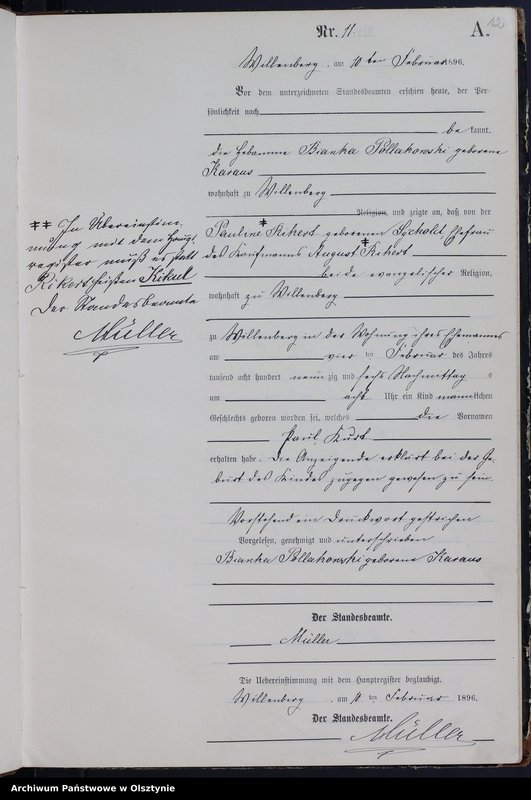 Nr. 11.
A.
12
Willenberg, am 10 ten Februar 1896.
Vor dem unterzeichneten Standesbeamten erschien heute, der Per-
sönlichkeit nach
be kannt,
die Hebamme Bianka Pollakowski geborene
Karaus
wohnhaft zu Willenberg
Religion, und zeigte an, daß von der
Pauline ‡ Kikert geborenen Ehefrau
des Kaufmanns August ‡ Kikert
beide evangelischer Religion,
wohnhaft zu Willenberg
zu Willenberg in der Wohnung ihres Ehemannes
am vier ten Februar des Jahres
tausend acht hundert neun zig und sechs Nachmittag s
um acht Uhr ein Kind männlichen
Geschlechts geboren worden sei, welches die Vornamen
Paul, Kurt
erhalten habe. Die Anzeigende erklärt bei der Ge-
burt des Kindes zugegen gewesen zu sein.
Vorstehend ein Druckwort gestrichen
Vorgelesen, genehmigt und unterschrieben
Bianka Pollakowski geborene Karaus
Der Standesbeamte.
Müller
Die Uebereinstimmung mit dem Hauptregister beglaubigt.
Willenberg, am 10 ten Februar 1896.
Der Standesbeamte.
Müller
‡‡ In Übereinstim-
mung mit dem Haupt
register muß es statt
Der Standesbeamte
Müller
Archiwum Państwowe w Olsztynie